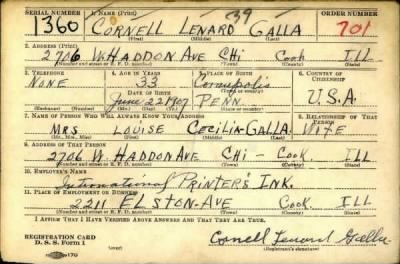 SERIAL NUMBER 1. NAME (Print) 39 ORDER NUMBER
1360 CORNELL LENARD GALLA 701
(First) (Middle) (Last)
2. ADDRESS (Print)
2706 W. HADDON AVE CHI Cook ILL
(Number and street or R. F. D. number) (Town) (County) (State)
3. TELEPHONE 4. AGE IN YEARS 5. PLACE OF BIRTH 6. COUNTRY OF CITIZENSHIP
NONE 33 Coraopolis
DATE OF BIRTH (Town or county)
June 22 1907 PENN. U.S.A
(Exchange) (Number) (Mo.) (Day) (Yr.) (State or country)
7. NAME OF PERSON WHO WILL ALWAYS KNOW YOUR ADDRESS 8. RELATIONSHIP OF THAT PERSON
MRS LOUISE CECILIA GALLA. WIFE
(Mr., Mrs., Miss) (First) (Middle) (Last)
9. ADDRESS OF THAT PERSON
2706 W. HADDON AVE CHI - COOK. ILL
(Number and street or R. F. D. number) (Town) (County) (State)
10. EMPLOYER'S NAME
International PRINTER'S INK.
11. PLACE OF EMPLOYMENT OR BUSINESS
2211 ELSTON-AVE COOK ILL
(Number and street or R. F. D. number) (Town) (County) (State)
I AFFIRM THAT I HAVE VERIFIED ABOVE ANSWERS AND THAT THEY ARE TRUE.
Cornell Lenard Galla
REGISTRATION CARD
D. S. S. Form 1 (Registrant's signature)